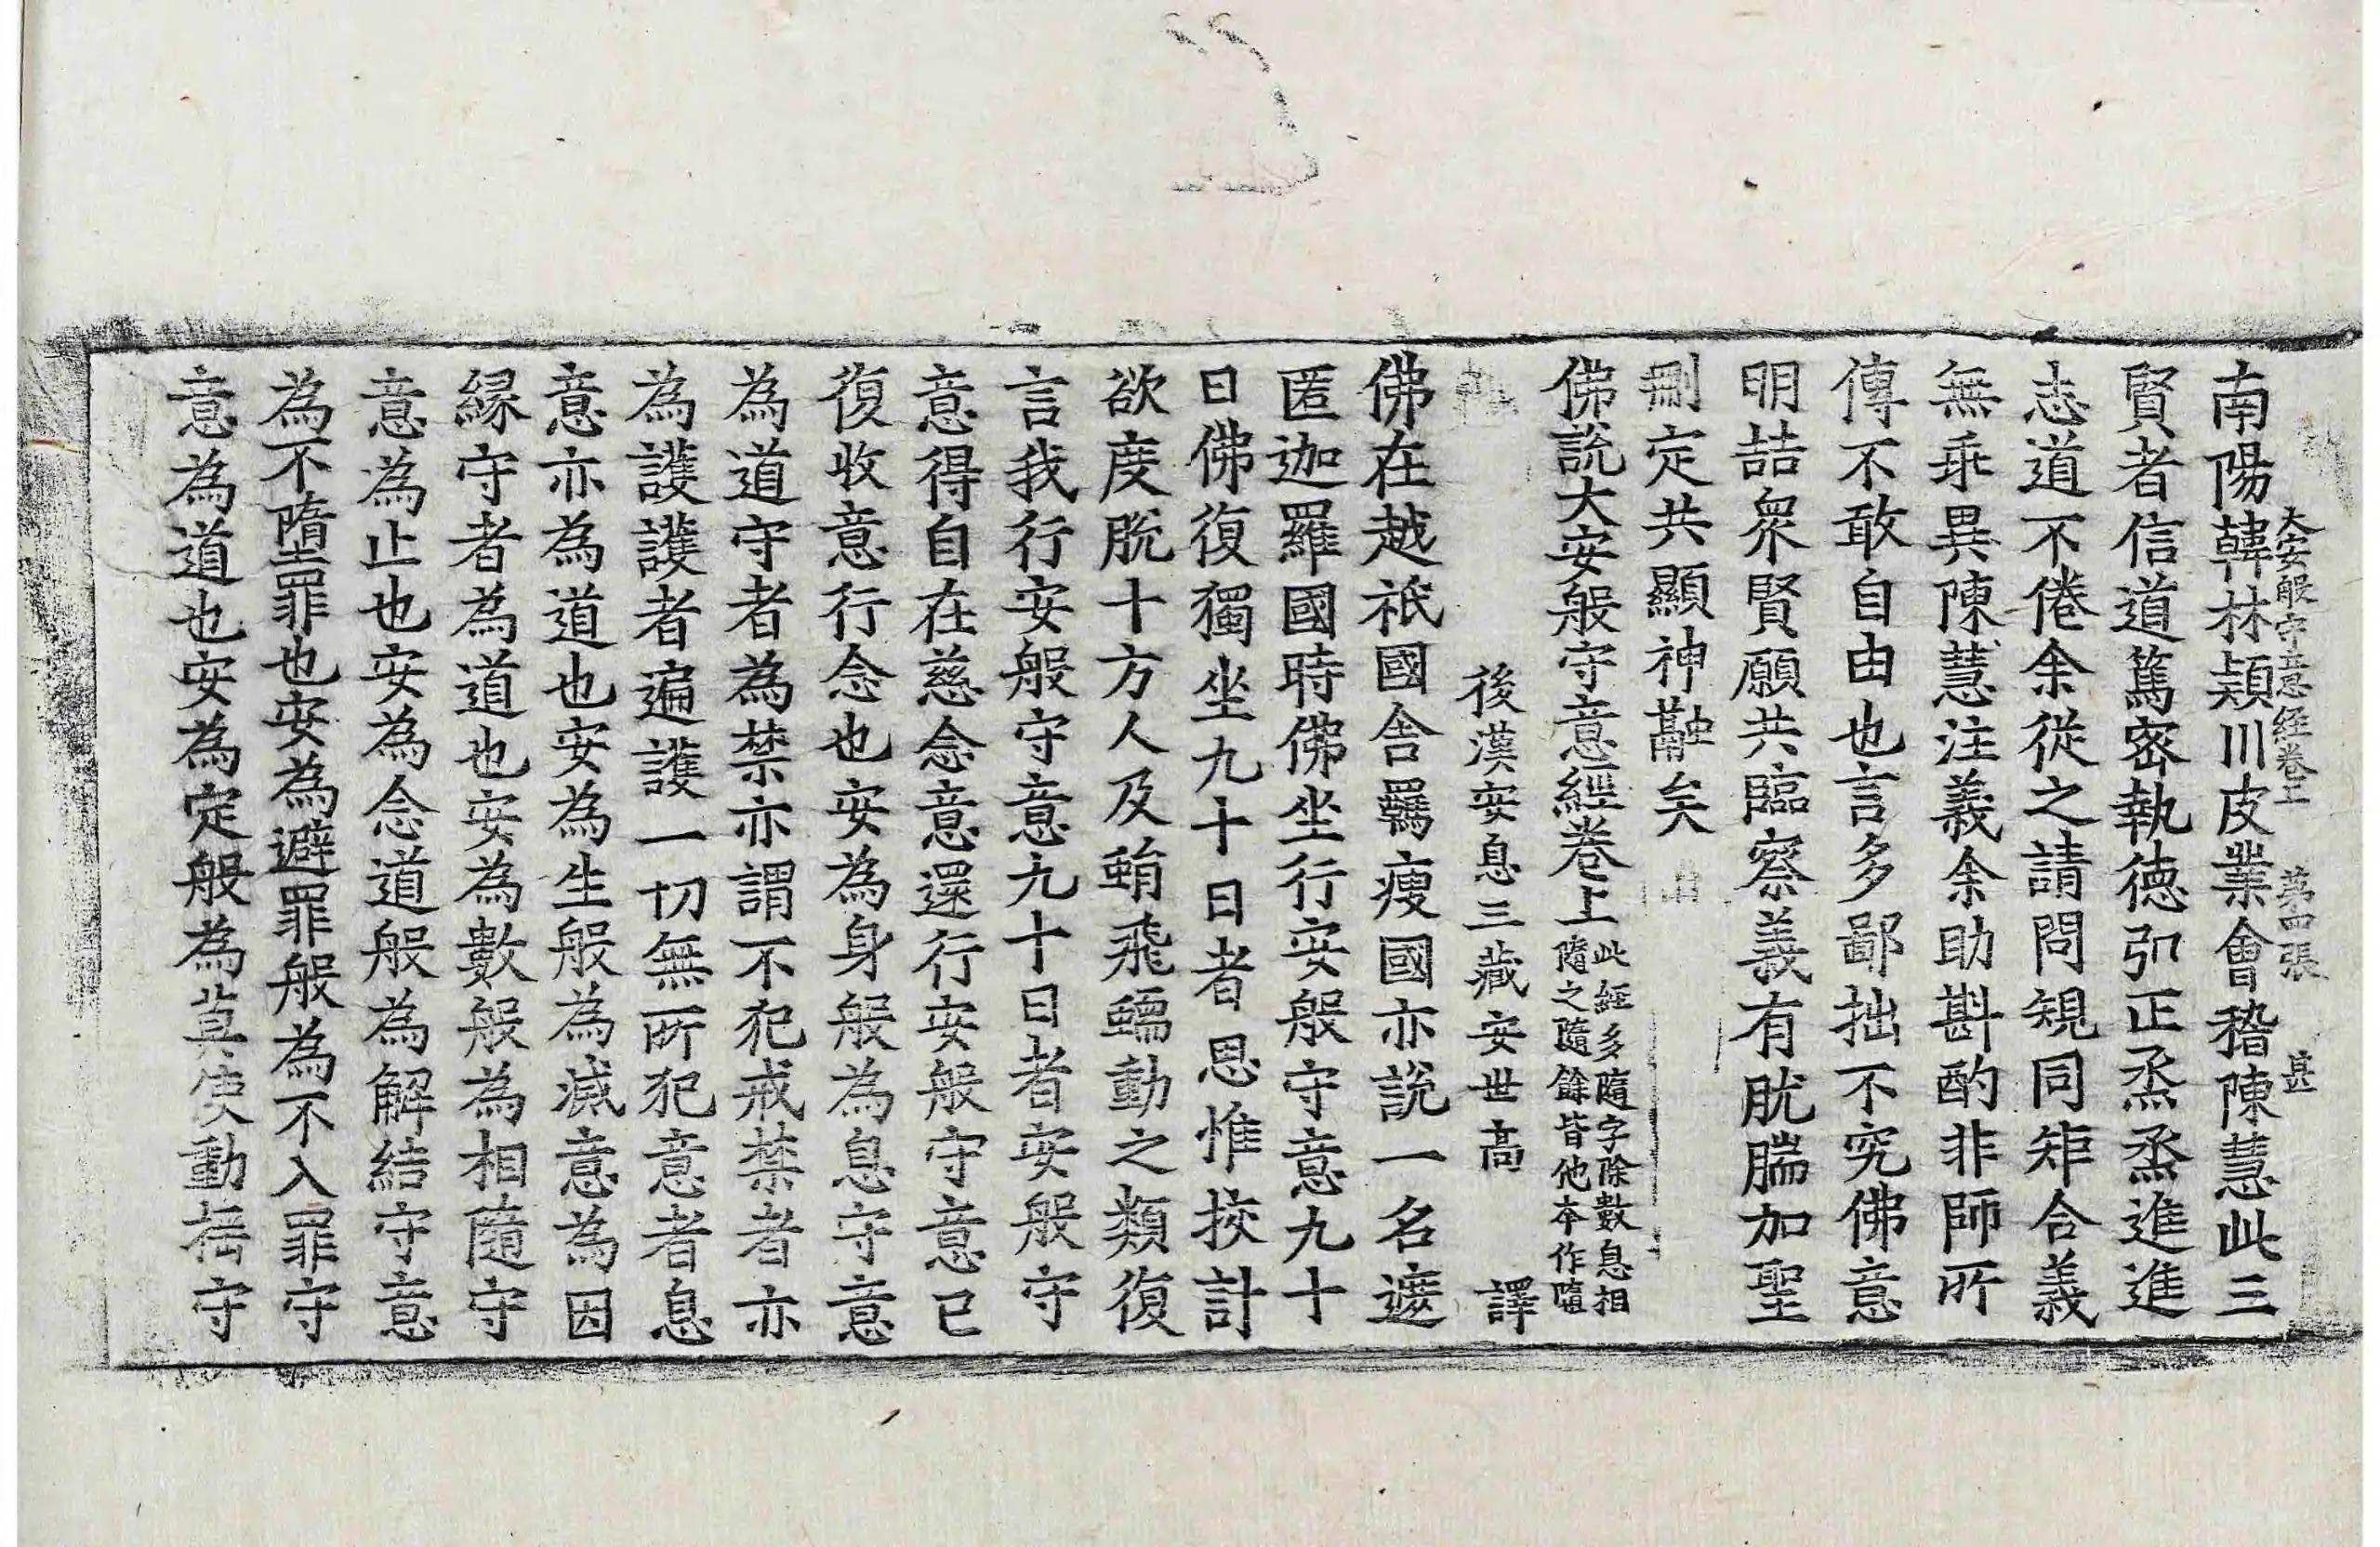 大安般守意經卷上 第四張 甚
南陽韓林頴川皮業會稽陳慧此三
賢者信道篤密執德弘正烝烝進進
志道不倦余從之請問規同矩合義
無乖異陳慧注義余助斟酌非師所
傳不敢自由也言多鄙拙不究佛意
明喆衆賢願共臨察義有肬腨加聖
刪定共顯神融矣
佛說大安般守意經卷上
此經多隨字除數息相
隨之隨餘皆他本作墮
後漢安息三藏安世高 譯
佛在越祇國舍羈瘦國亦說一名遮
匿迦羅國時佛坐行安般守意九十
日佛復獨坐九十日者思惟挍計
欲度脫十方人及蜎飛蠕動之類復
言我行安般守意九十日者安般守
意得自在慈念意還行安般守意已
復收意行念也安為身般為息守意
為道守者為禁亦謂不犯戒禁者亦
為護護者遍護一切無所犯意者息
意亦為道也安為生般為滅意為因
緣守者為道也安為數般為相隨守
意為止也安為念道般為解結守意
為不墮罪也安為避罪般為不入罪守
意為道也安為定般為莫使動搖守